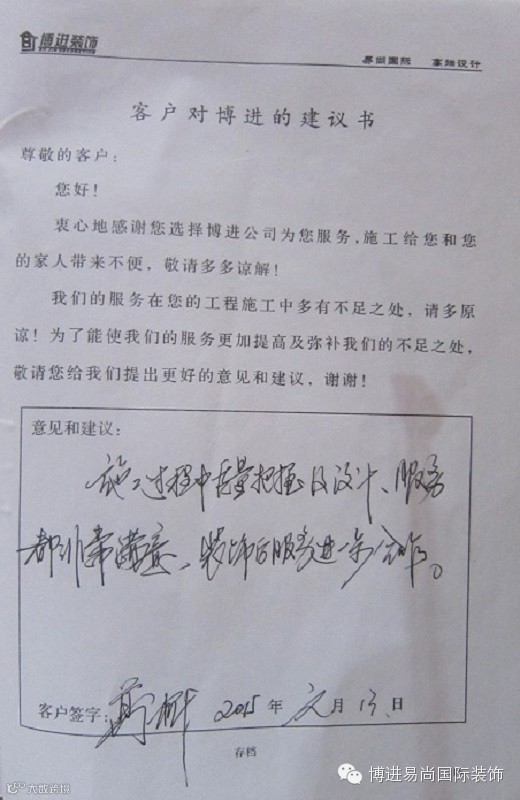 博进装饰
易尚国际 高端设计
客户对博进的建议书
尊敬的客户：
您好！
衷心地感谢您选择博进公司为您服务，施工给您和您
的家人带来不便，敬请多多谅解！
我们的服务在您的工程施工中多有不足之处，请多原
谅！为了能使我们的服务更加提高及弥补我们的不足之处，
敬请您给我们提出更好的意见和建议，谢谢！
意见和建议：
施工过程中质量把握及设计、服务
都非常满意、装饰后服务进一步合作。
客户签字： 2015年 元月13日
存档
大数跨境
博进易尚国际装饰